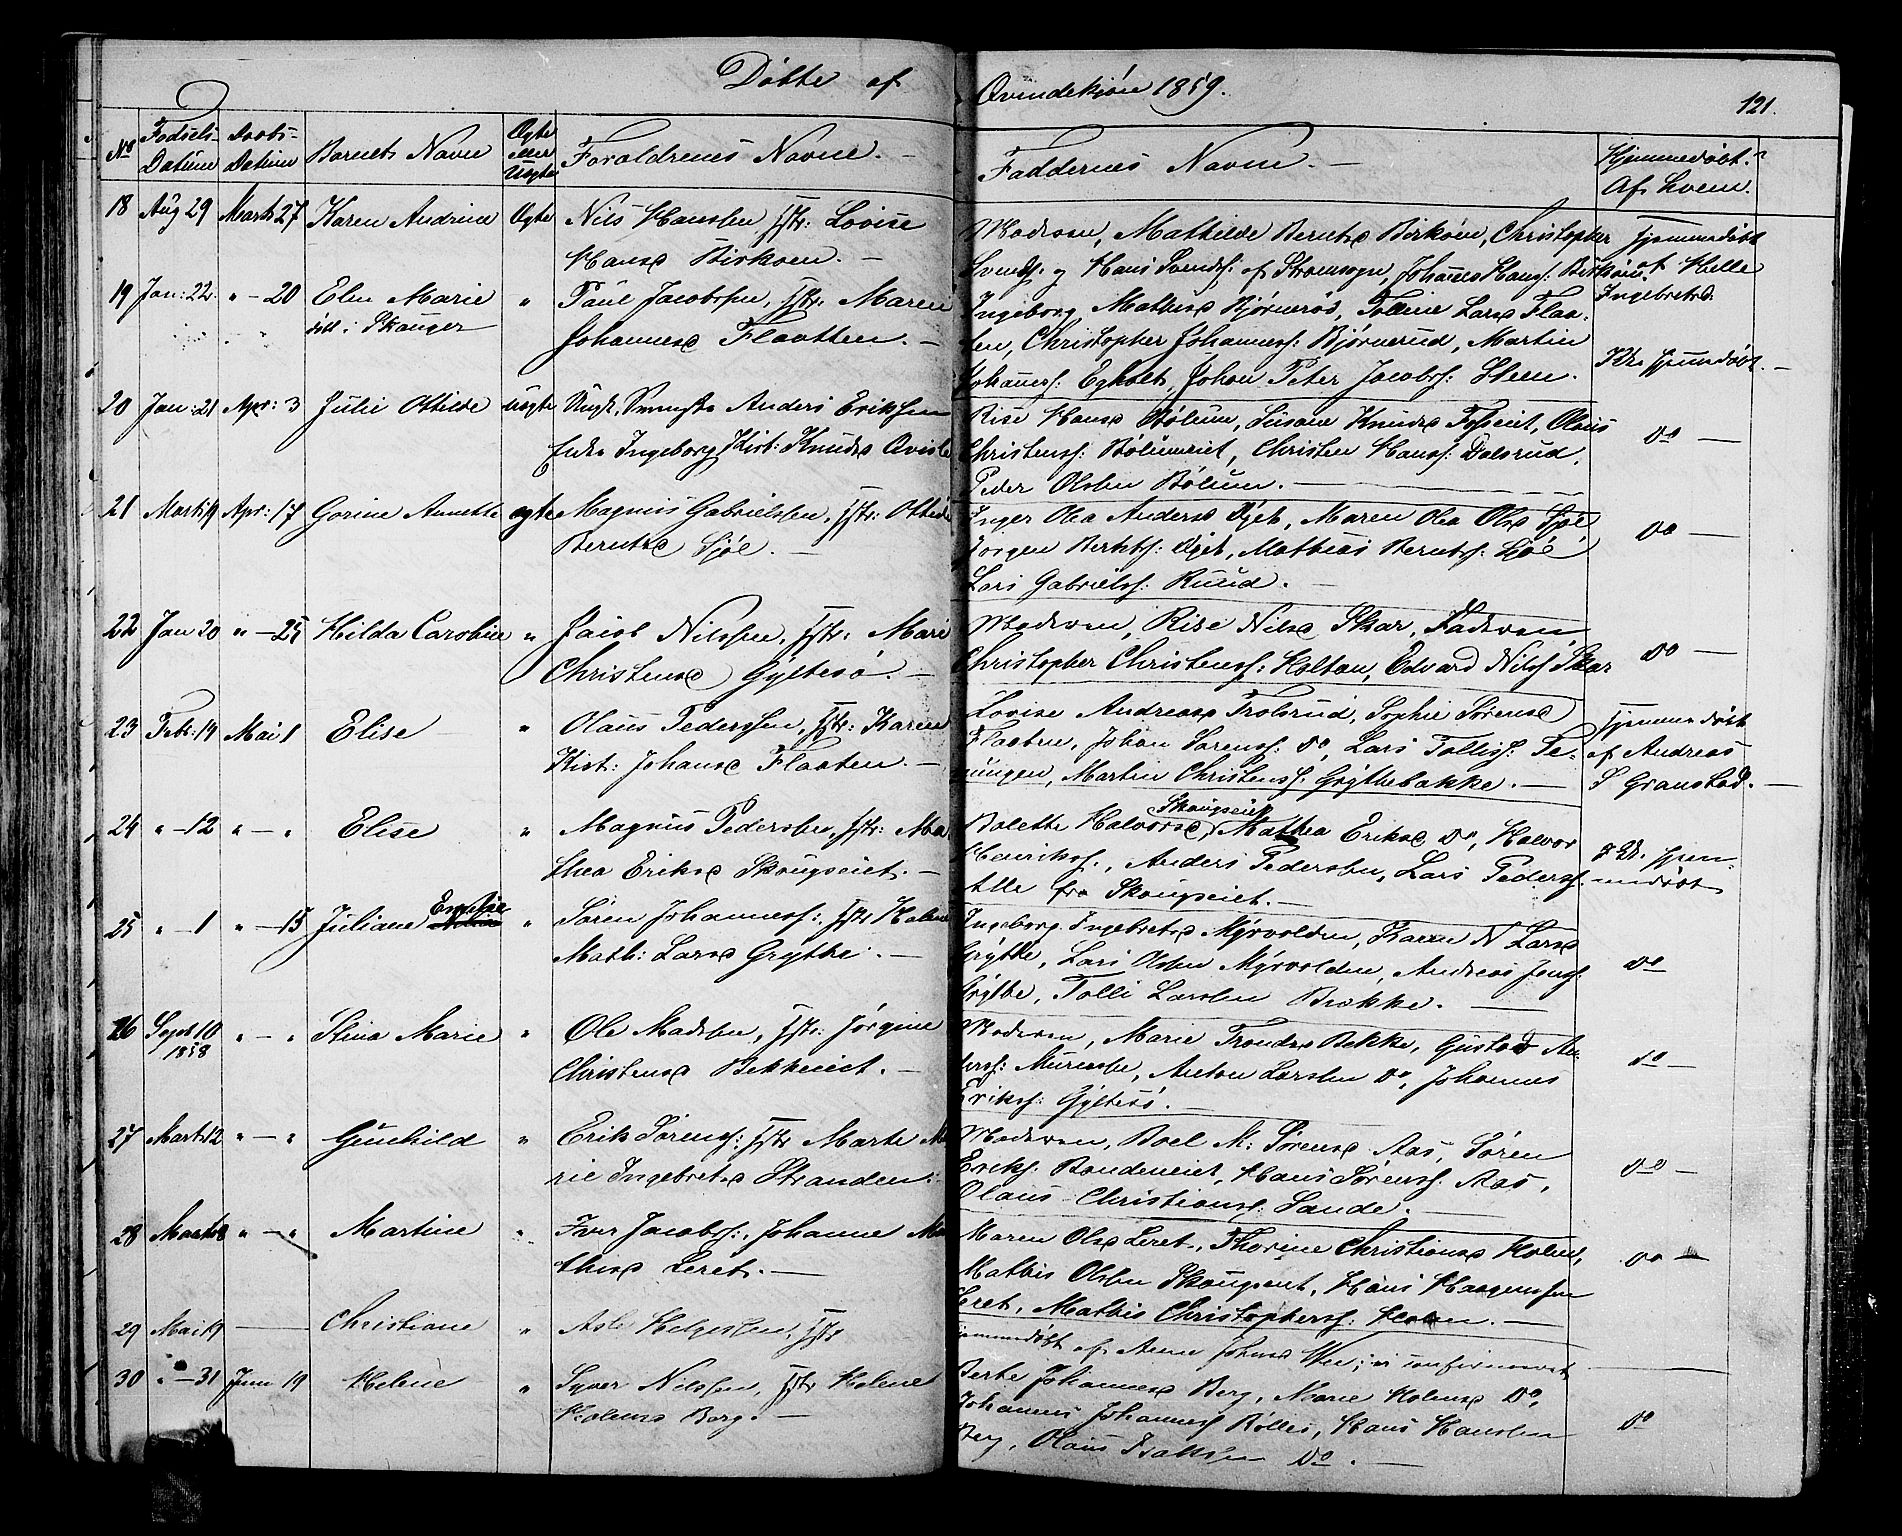 Døbte af Qvindekjön 1859.
121.
No Fødsels-Datum Daabs-Datum Barnets Navn Ægte eller Uægte Forældrenes Navne. — Faddernes Navne. — Hjemmedøbt? Af hvem.
18 Aug 29 Marts 27 Karen Andrine Ægte Nils Hanssen, Hstr: Lovise
Hansd Birkøen. —
Moderen, Mathilde Berntsd Birkøen, Christopher
Svends: og Hans Svends: af Strømsogn, Johannes Hans: Birkøen.
Hjemmedøbt af Helle
Ingebretsd.
19 Jan: 22. " — 20 Elen Marie " Paul Jacobssen, Hstr: Maren
døbt i Skouger Johannesd Flaatten. —
Ingeborg Mathisd Bjørnerød, Toline Larsd Flaa-
ten, Christopher Johanness: Bjørnerud, Martin
Johanness: Egholt, Johan Peter Jacobs: Steen.
Ikke hjemmedøbt. —
20 Jan: 21 Apr: 3 Julie Ottilde Uægte Ungk, Svenske Anders Eriksen
Enke Ingeborg Kirst: Knudsd Qvisle
Rise Hansd Bølum, Susane Knudsd Fosseiet, Olaus
Christenss: Bølumeiet, Christen Hanss: Dalsrud,
Peder Olssen Bølum. —
Do —
21 Marts 19 Apr: 17 Gorine Annette ægte Magnus Gabrielssen, Hstr: Ottilde
Berntsd Sjøl. —
Inger Olea Andersd Øjet, Maren Olea Olsd Sjøl,
Jørgen Berntss: Øjet, Mathias Berntss: Sjøl
Lars Gabrielss: Ruud. —
Do —
22 Jan 20 " — 25 Hilda Caroline " Jacob Nilssen, Hstr: Mari
Christensd Gyltesø. —
Moderen, Rise Nilsd Skar, Faderen
Christopher Christenss: Holtan, Edvard Nilss Skar
Do —
23 Febr: 14 Mai 1 Elise " Olaus Pederssen, Hstr: Karen
Kirst: Johansd Flaaten. —
Lovise Andreasd Trolsrud, Sophie Sørensd
Flaaten, Johan Sørenss: Do, Lars Tolliss: Te-
nungen, Martin Christenss: Grÿttebakke. —
Hjemmedøbt
af Andreas
S Granstad. —
24 " — 12 " — " Elise " Magnus Pederssen, Hstr: Ma-
thea Eriksd Skougseiet. —
Skougseiet
Bolette Halvorsd, Mathea Eriksd Do, Halvor
Henrikss:, Anders Pederssen, Lars Pederss:
Alle fra Skougseiet. —
Ikke hjem-
medøbt
25 " — 1 " — 15 Juliane Emilie " Søren Johanness: Hstr Helene
Math: Larsd Grÿtte. —
Ingeborg Ingebretsd Mÿrvolden, Karen N Larsd
Grÿtte, Lars Olssen Mÿrvolden, Andreas Jenss:
Grÿtte, Tolli Larssen Brekke. —
Do
26 Septb 10 1858 " — " Stina Marie " Ole Madssen, Hstr: Jørgine
Christensd Bekkeiet. —
Moderen, Marie Trondsd Bekke, Gustav An-
derss: Murensle, Anton Larssen Do, Johannes
Erikss: Gyltesø. —
Do —
27 Marts 12 " — " Gunhild " Erik Sørenss: Hstr Marte Ma-
rie Ingebretsd Stranden.
Moderen, Boel M: Sørensd Aas, Søren
Erikss: Bondeneiet, Hans Sørenss: Aas,
Olaus Christianss: Sande. —
Do —
28 Marts 8 " — " Martine " Iver Jacobss:, Johanne Ma-
thisd Leret. —
Maren Olsd Leret, Thorine Christiansd Holm,
Mathis Olssen Skougseiet, Hans Haagenssen
Leret, Mathis Christopherss: Holmen. —
Do —
29 Mai 19 — Christiane " Asle Helgessen, Hstr
Hjemmedøbt af Anne Johnsd Wee, ei confirmeret —
30 " — 31 Juni 19 Helene " Syver Nilssen, Hstr Helene
Halvorsd Berg. —
Berte Johannesd Berg, Marie Holensd Do,
Johannes Johanness Bølles, Hans Hanssen
Berg, Olaus Isakssen Do. —
Do